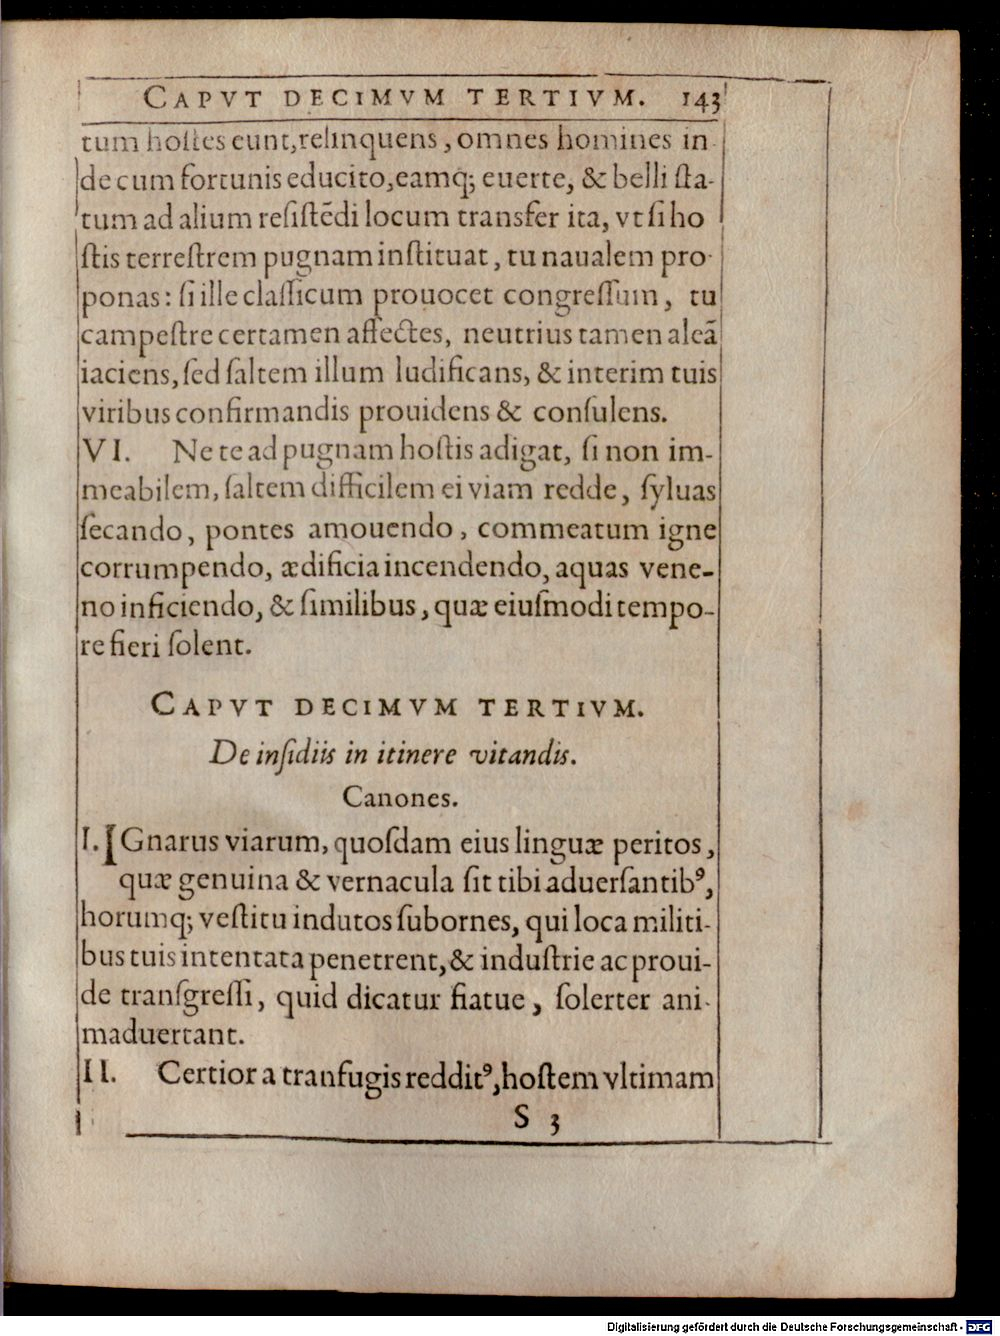 CAPVT DECIMVM TERTIVM. 143
tum hostes eunt, relinquens, omnes homines in-
de cum fortunis educito, eamq; euerte, & belli sta-
tum ad alium resistēdi locum transfer ita, vt si ho
stis terrestrem pugnam instituat, tu naualem pro-
ponas: si ille classicum prouocet congressum, tu
campestre certamen affectes, neutrius tamen aleā
iaciens, sed saltem illum ludificans, & interim tuis
viribus confirmandis prouidens & consulens.
VI. Ne te ad pugnam hostis adigat, si non im-
meabilem, saltem difficilem ei viam redde, syluas
secando, pontes amouendo, commeatum igne
corrumpendo, ædificia incendendo, aquas vene-
no inficiendo, & similibus, quæ eiusmodi tempo-
re fieri solent.
CAPVT DECIMVM TERTIVM.
De insidiis in itinere vitandis.
Canones.
I. IGnarus viarum, quosdam eius linguæ peritos,
quæ genuina & vernacula sit tibi aduersantibꝰ,
horumq; vestitu indutos subornes, qui loca militi-
bus tuis intentata penetrent, & industrie ac proui-
de transgressi, quid dicatur fiatue, solerter ani-
maduertant.
II. Certior a tranfugis redditꝰ, hostem vltimam
S 3
Digitalisierung gefördert durch die Deutsche Forschungsgemeinschaft - DFG